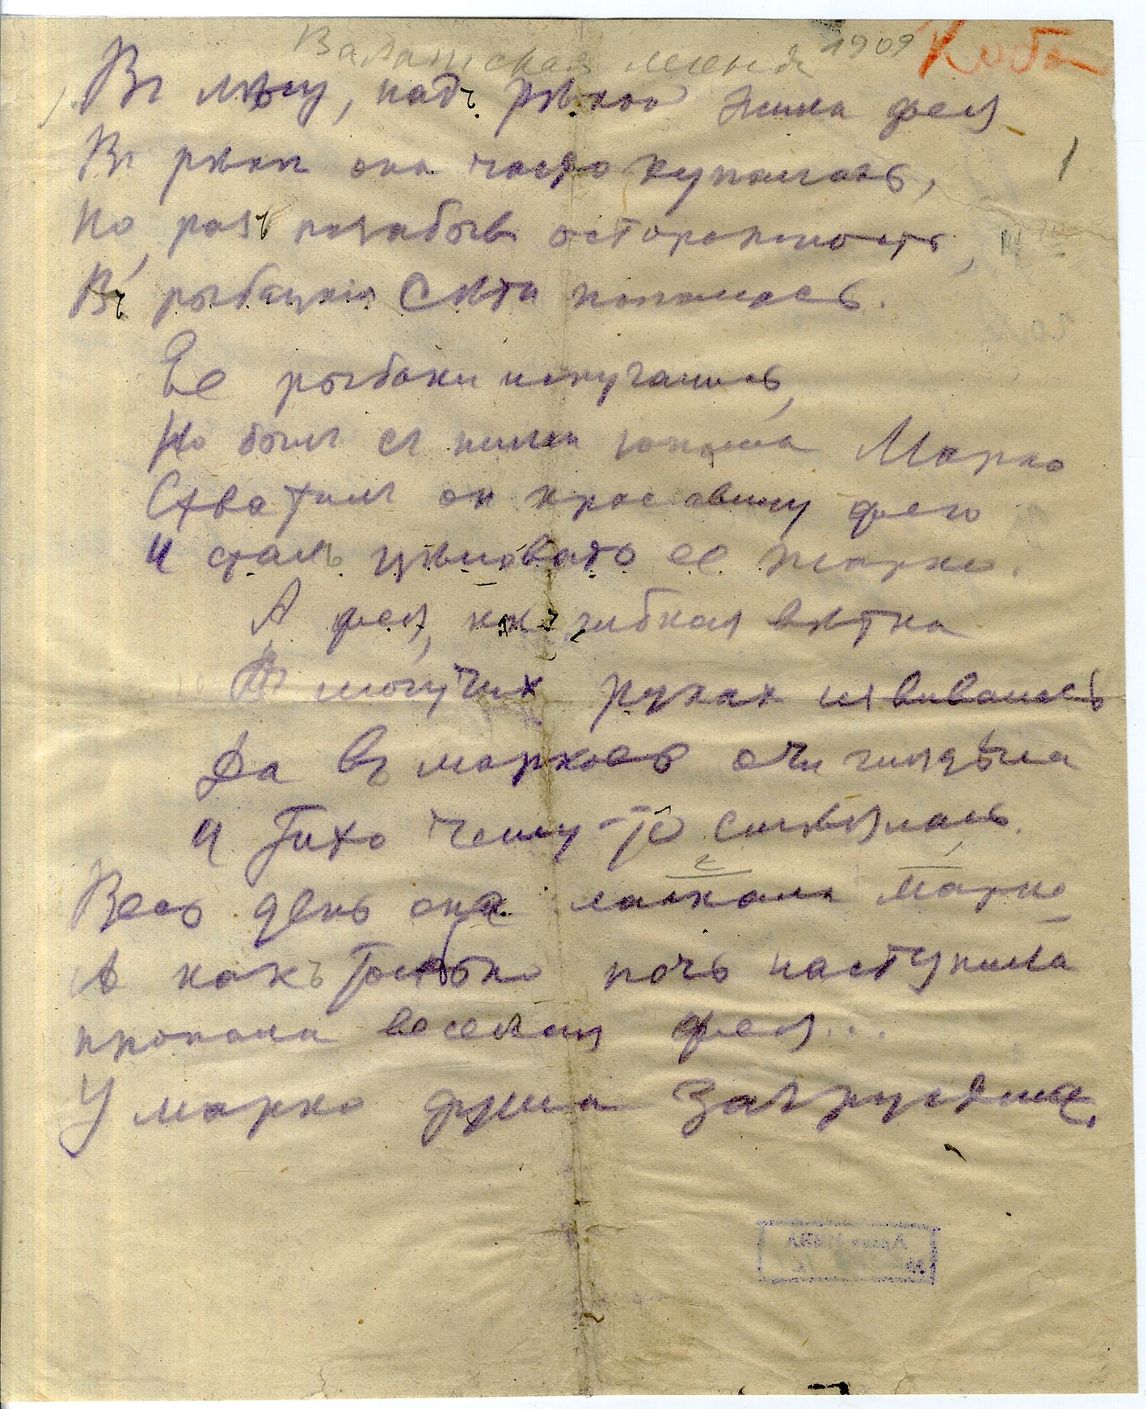 Валашская легенда 1909 Коба
Въ лѣсу, надъ рѣкой жила фея
Въ рѣкѣ она часто купалась,
Но, разъ позабыв осторожность,
Въ рыбацкія сѣти попалась.
Ее рыбаки испугались,
Но былъ съ ними юноша Марко
Схватилъ он красавицу фею
И сталъ цѣловать ее жарко.
А фея, какъ гибкая вѣтка
В могучих руках извивалась
Да въ марковы очи глядѣла
И тихо чему-то смѣялась.
Весь день она ласкала Марко
А какъ только ночь наступила
пропала веселая фея...
У марко душа загрустила,